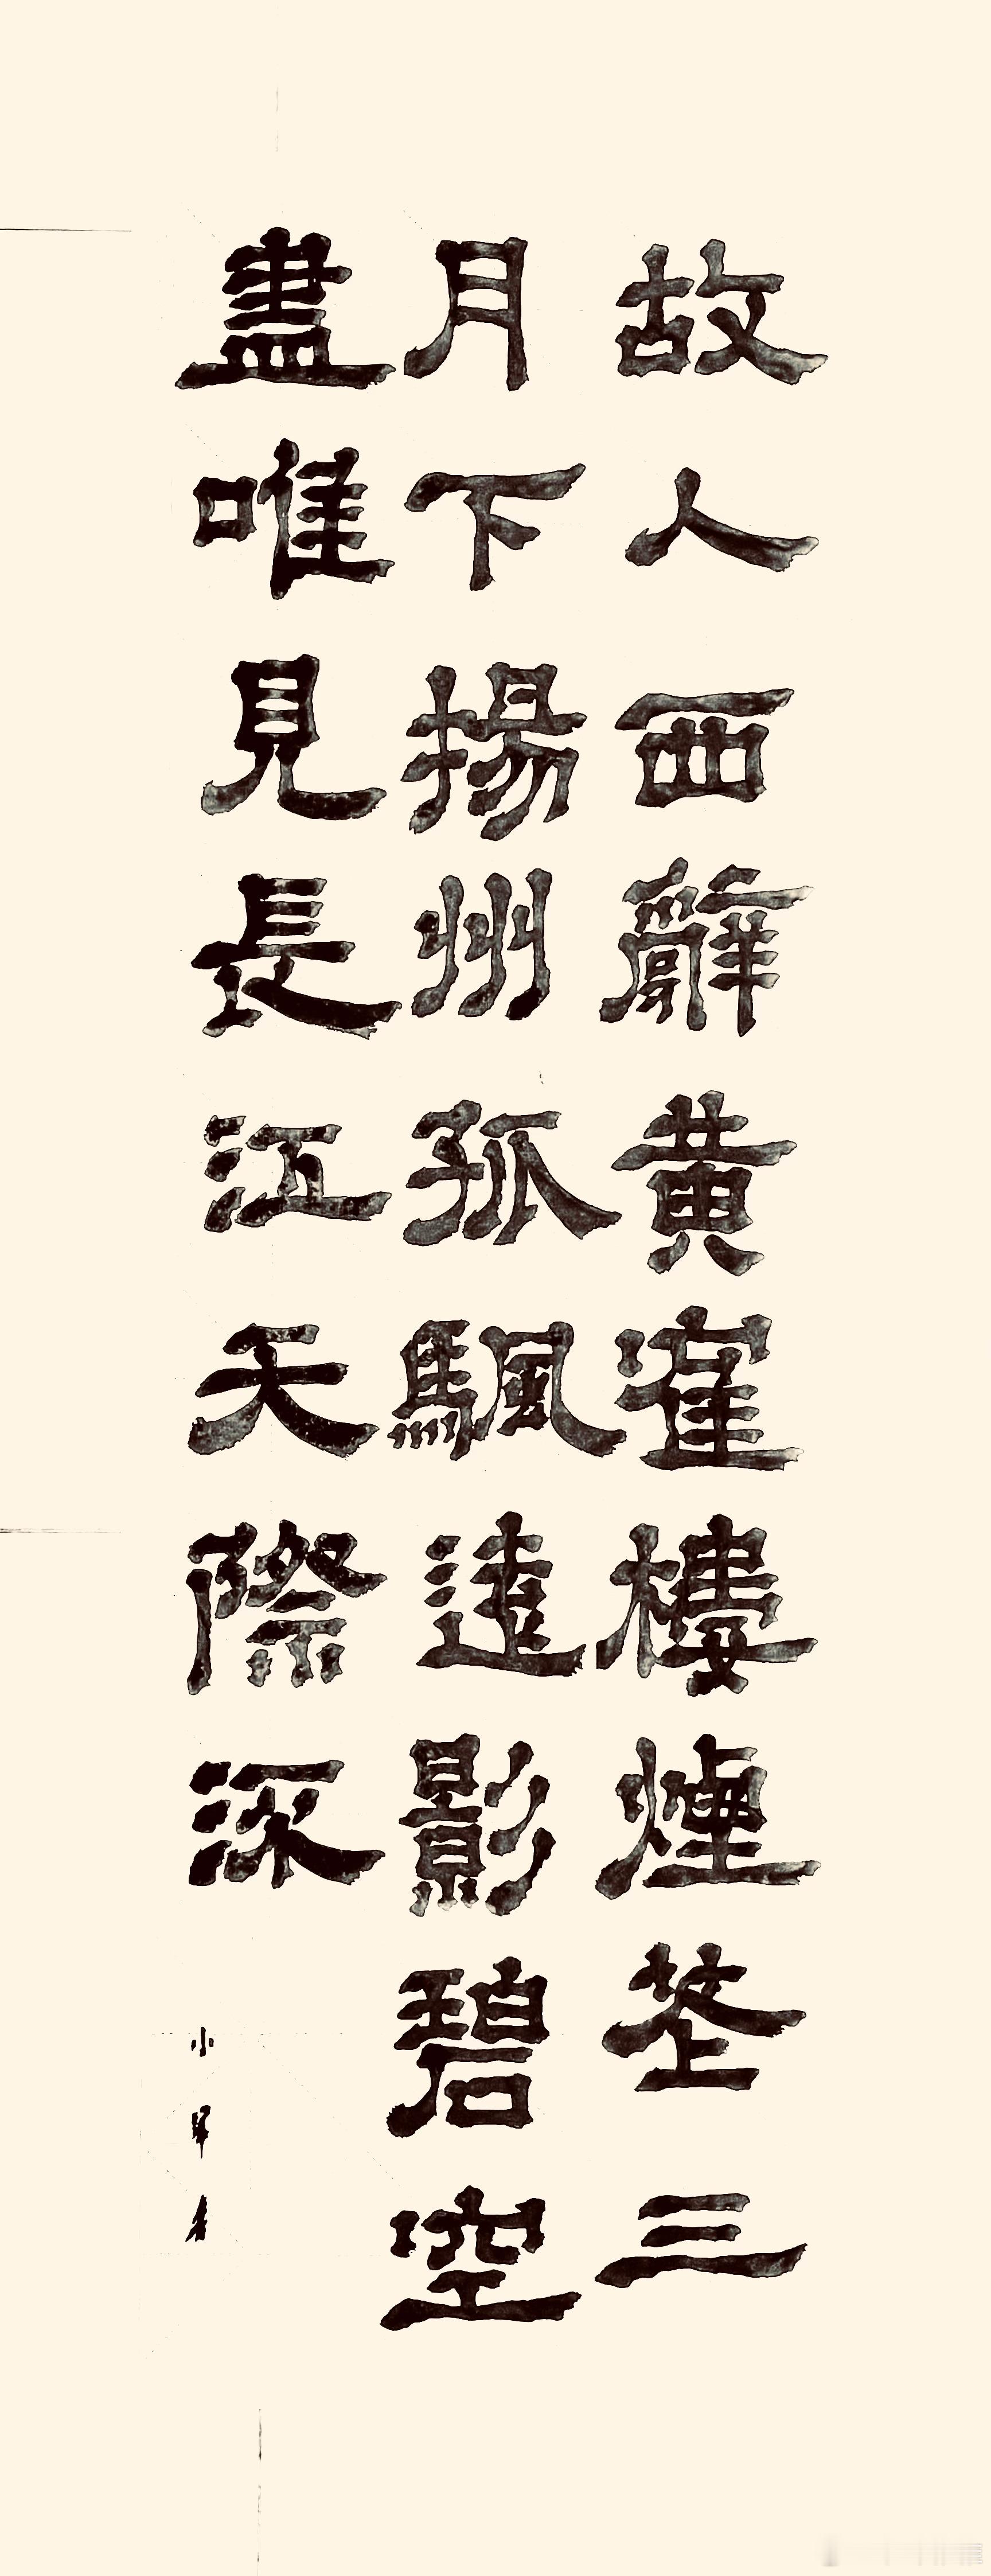 故人西辭黄寉樓煙芲三
月下揚州孤颿遠影碧空
盡唯見長江天際深
小